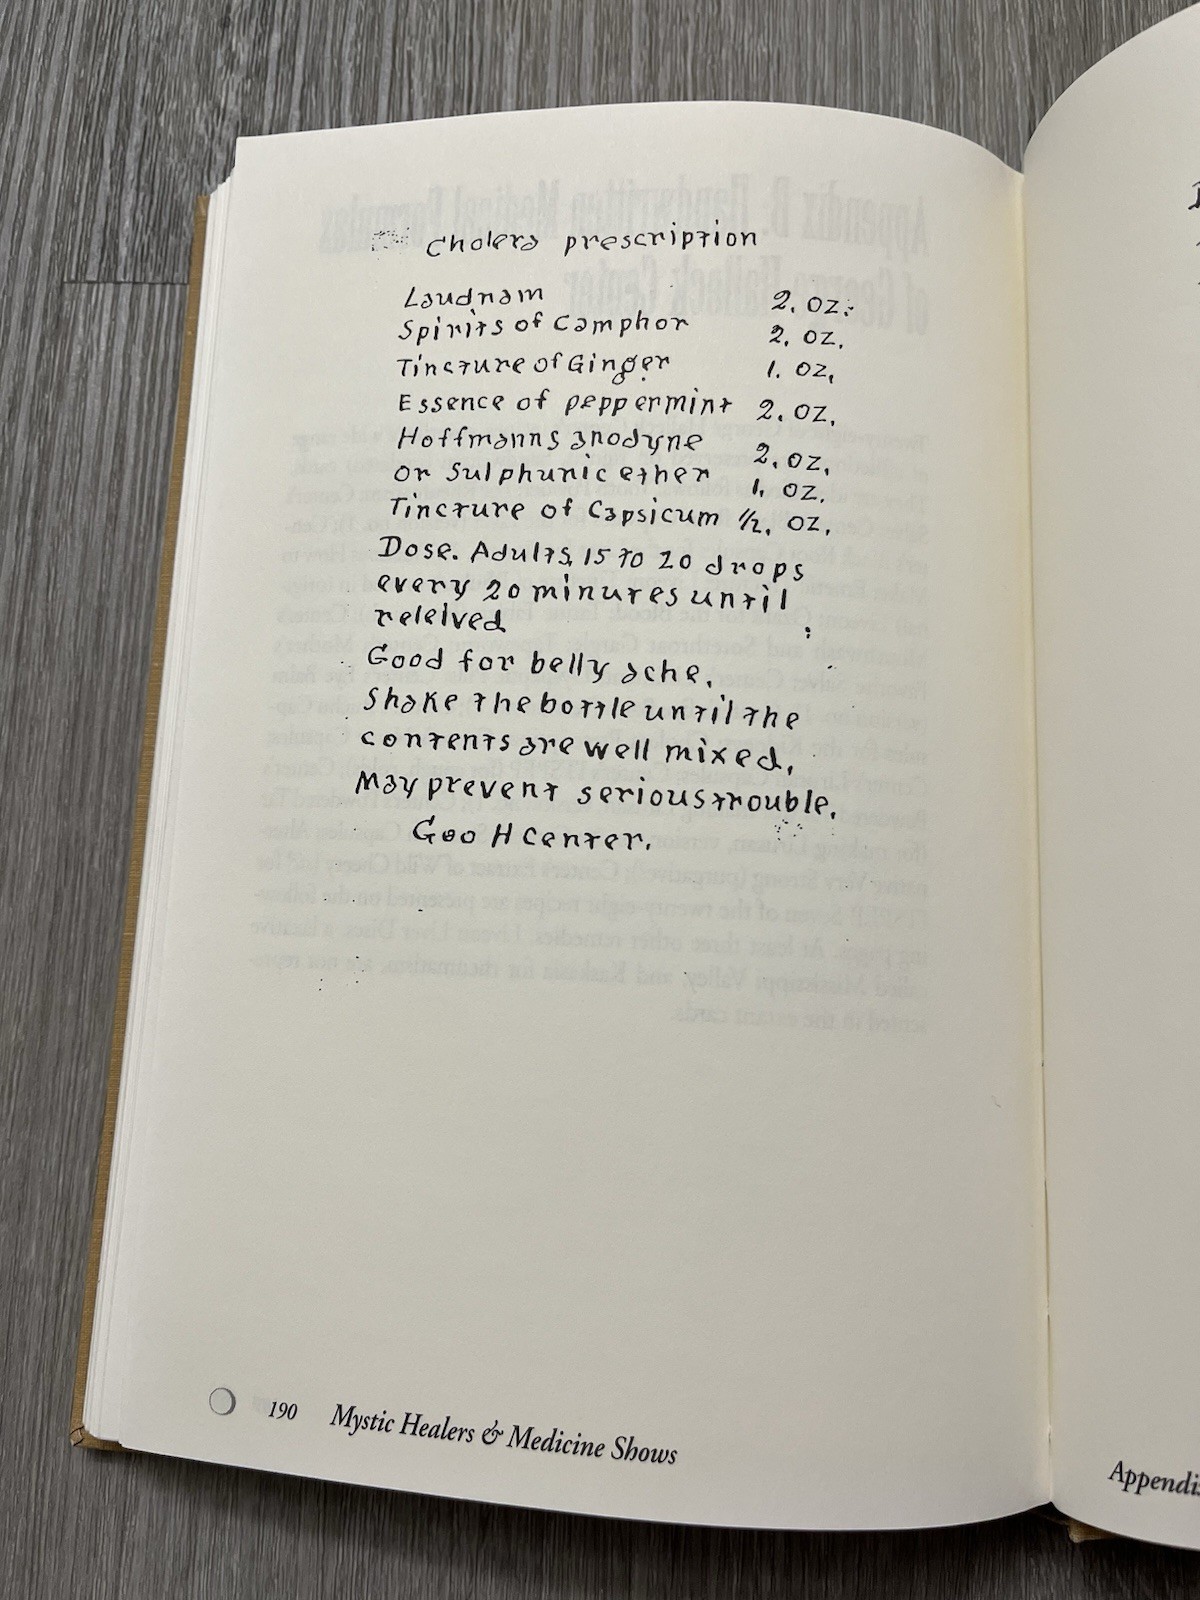 Cholera prescription
Laudnam 2. oz.
Spirits of Camphor 2. oz.
Tincture of Ginger 1. oz.
Essence of peppermint 2. oz.
Hoffmanns anodyne 2. oz.
or Sulphuric ether 1. oz.
Tincture of Capsicum 1/2. oz.
Dose. Adults, 15 to 20 drops
every 20 minutes until
releived
Good for belly ache.
Shake the bottle until the
contents are well mixed.
May prevent serious trouble.
Geo H Center.
190 Mystic Healers & Medicine Shows